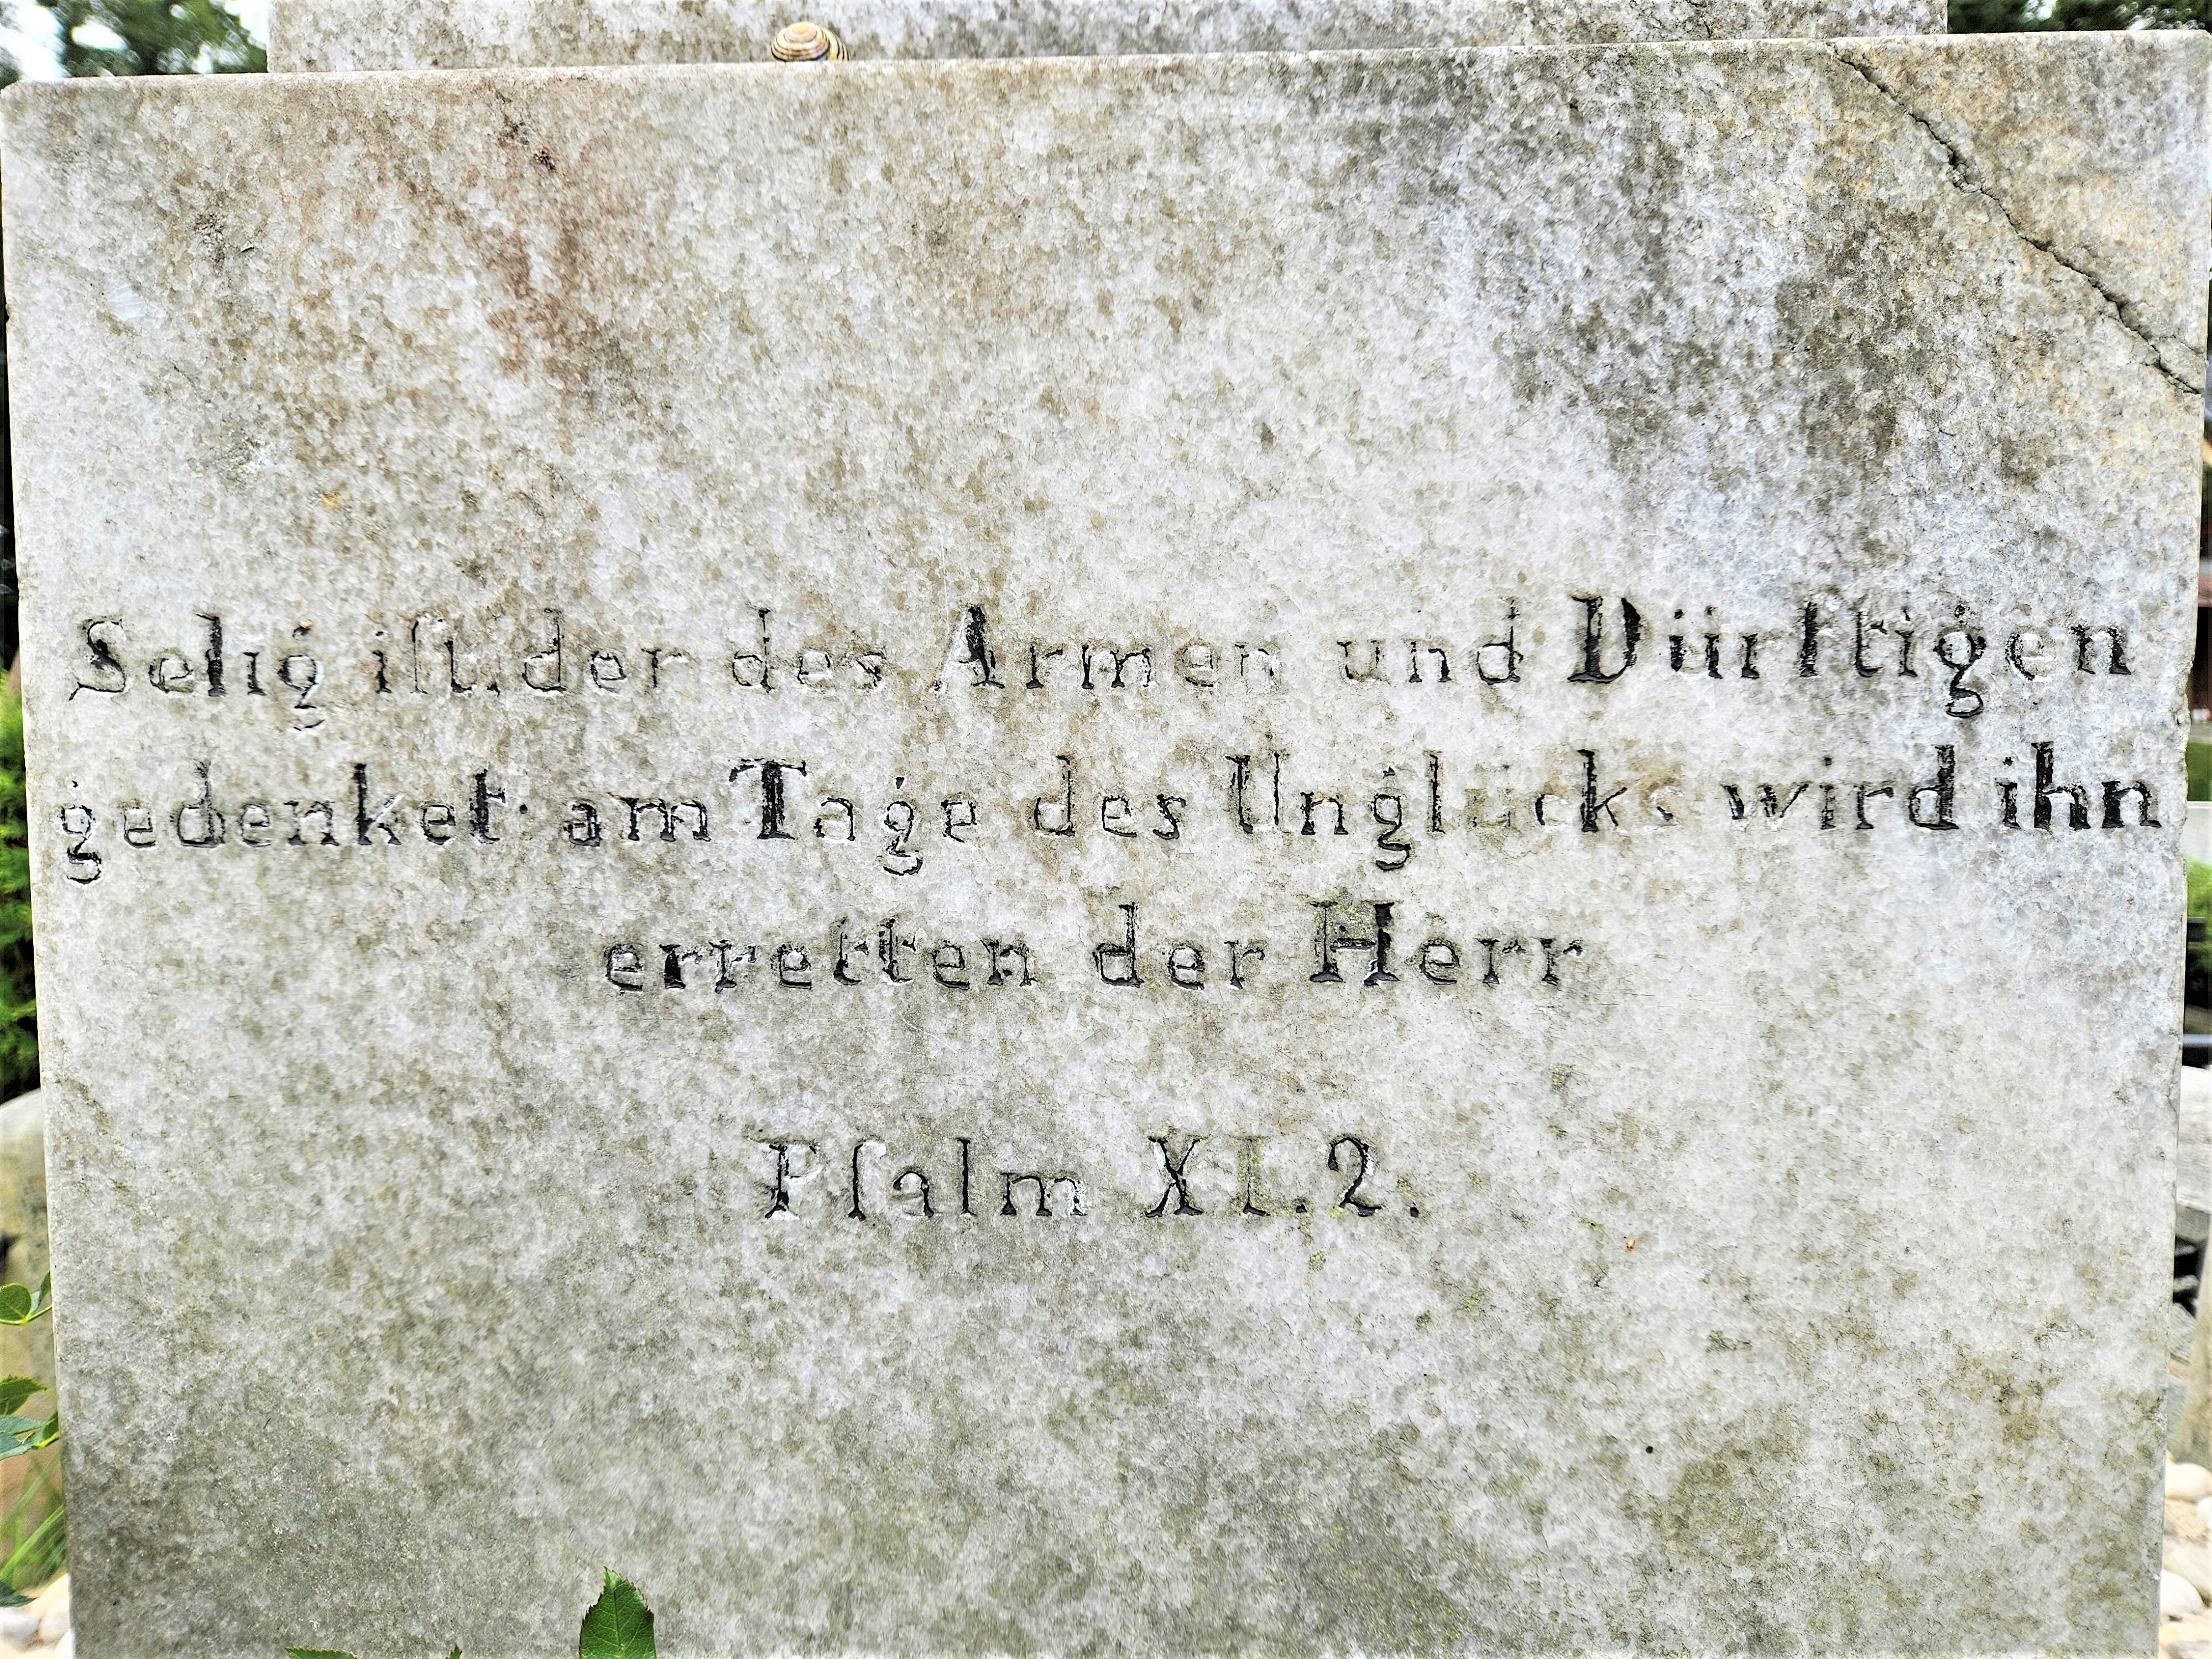 Selig iſt der des Armen und Dürftigen
gedenket am Tage des Unglücks wird ihn
erretten der Herr
Pſalm XI.2.